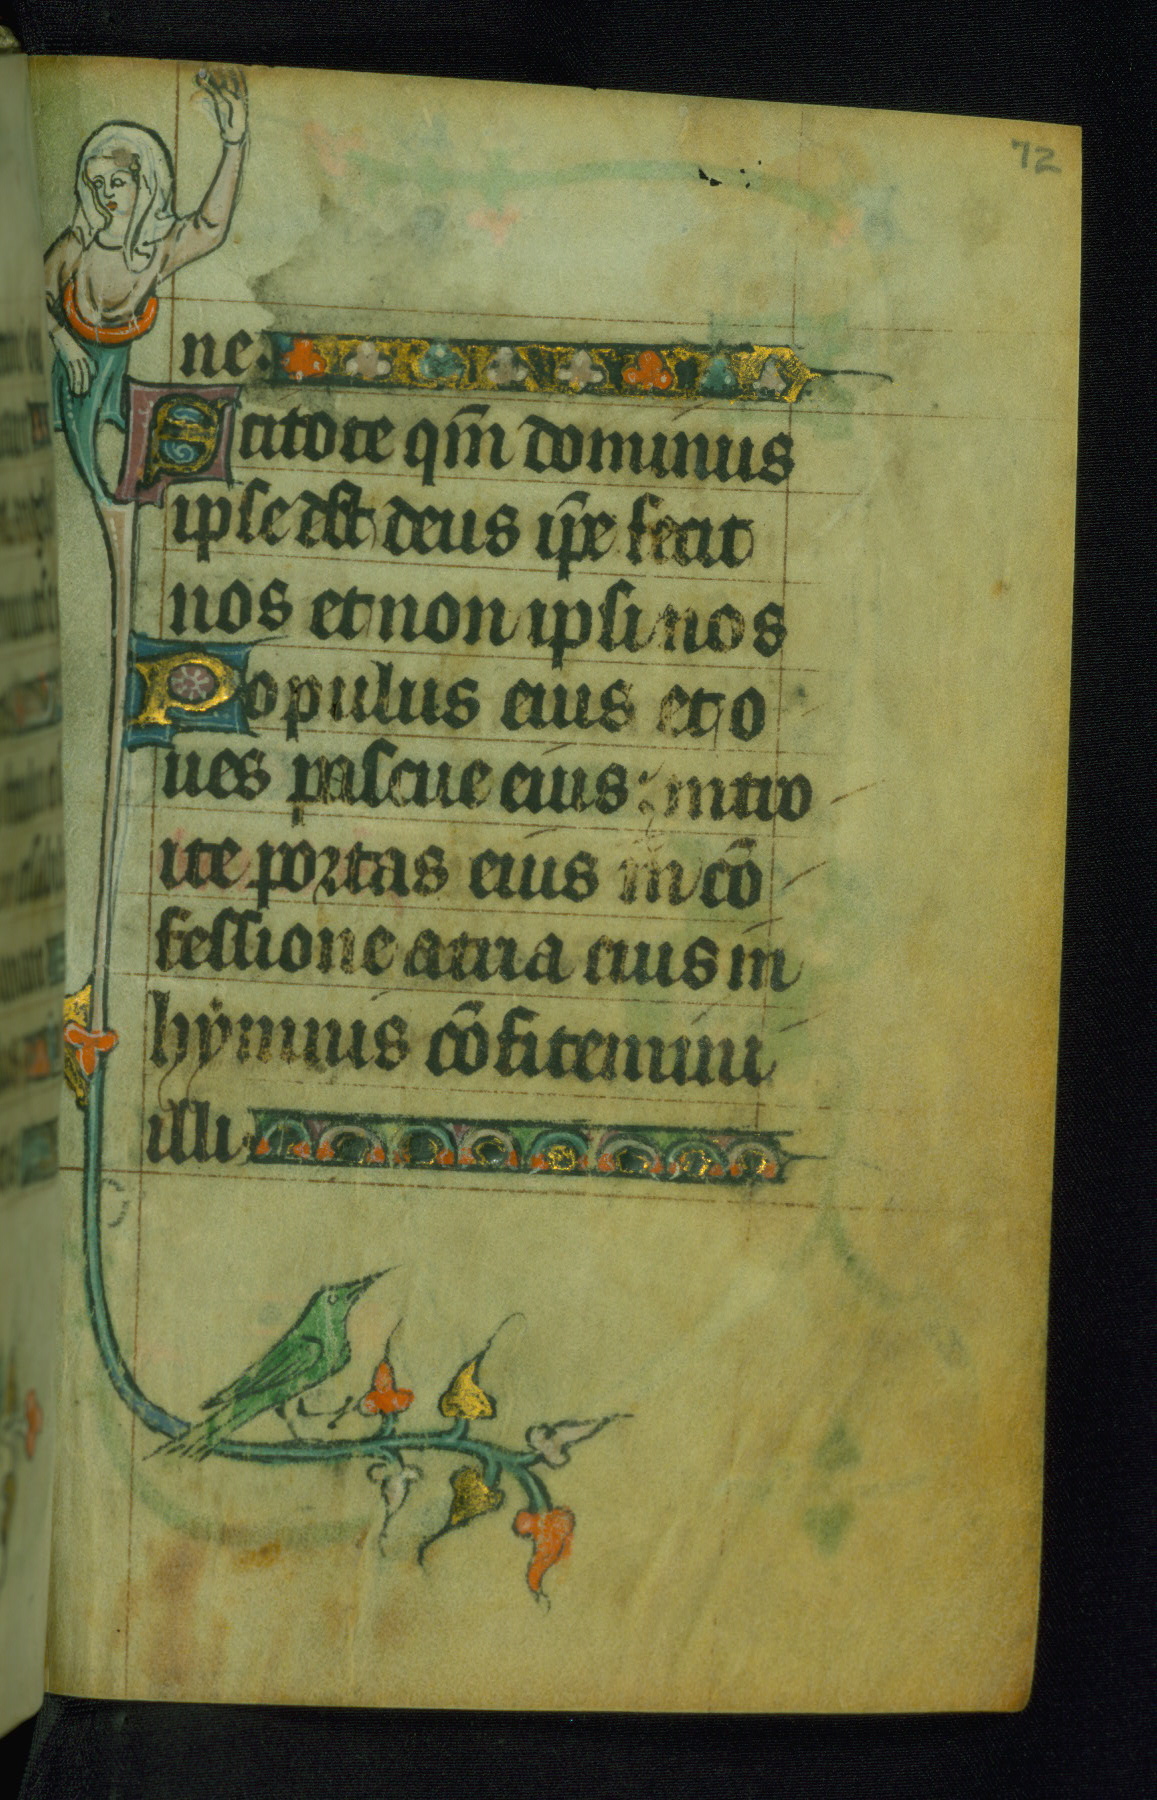 72
ne.
Scitote qm̄ dominus
ipse est deus ip̄e fecit
nos et non ipsi nos
Populus eius et o
ues pascue eius: intro
ite portas eius in cō
fessione atria eius in
hẏmnis cōfitemini
illi